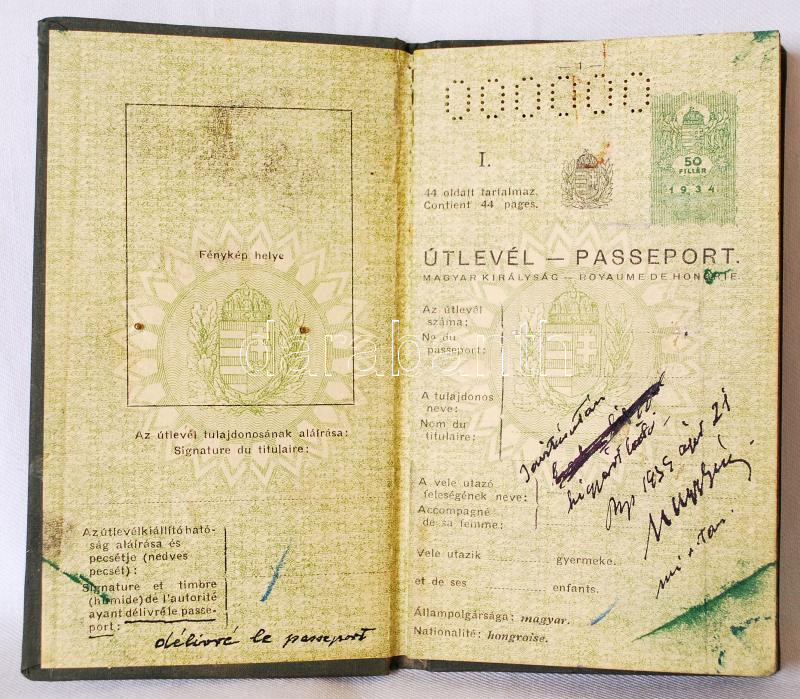 Fénykép helye
Az útlevél tulajdonosának aláírása:
Signature du titulaire:
Az útlevélkiállító ható-
ság aláírása és
pecsétje (nedves
pecsét):
Signature et timbre
(humide) de l'autorité
ayant délivré le passe-
port:
délivré le passeport
000000
I.
50
FILLÉR
1934
44 oldalt tartalmaz.
Contient 44 pages.
ÚTLEVÉL — PASSEPORT.
MAGYAR KIRÁLYSÁG — ROYAUME DE HONGRIE.
Az útlevél
száma:
No du
passeport:
A tulajdonos
neve:
Nom du
titulaire:
A vele utazó
feleségének neve:
Accompagné
de sa femme:
Vele utazik gyermeke.
et de ses enfants.
Állampolgársága: magyar.
Nationalité: hongroise.
Javítás után
Bp 1939 ápr 21
darabanth